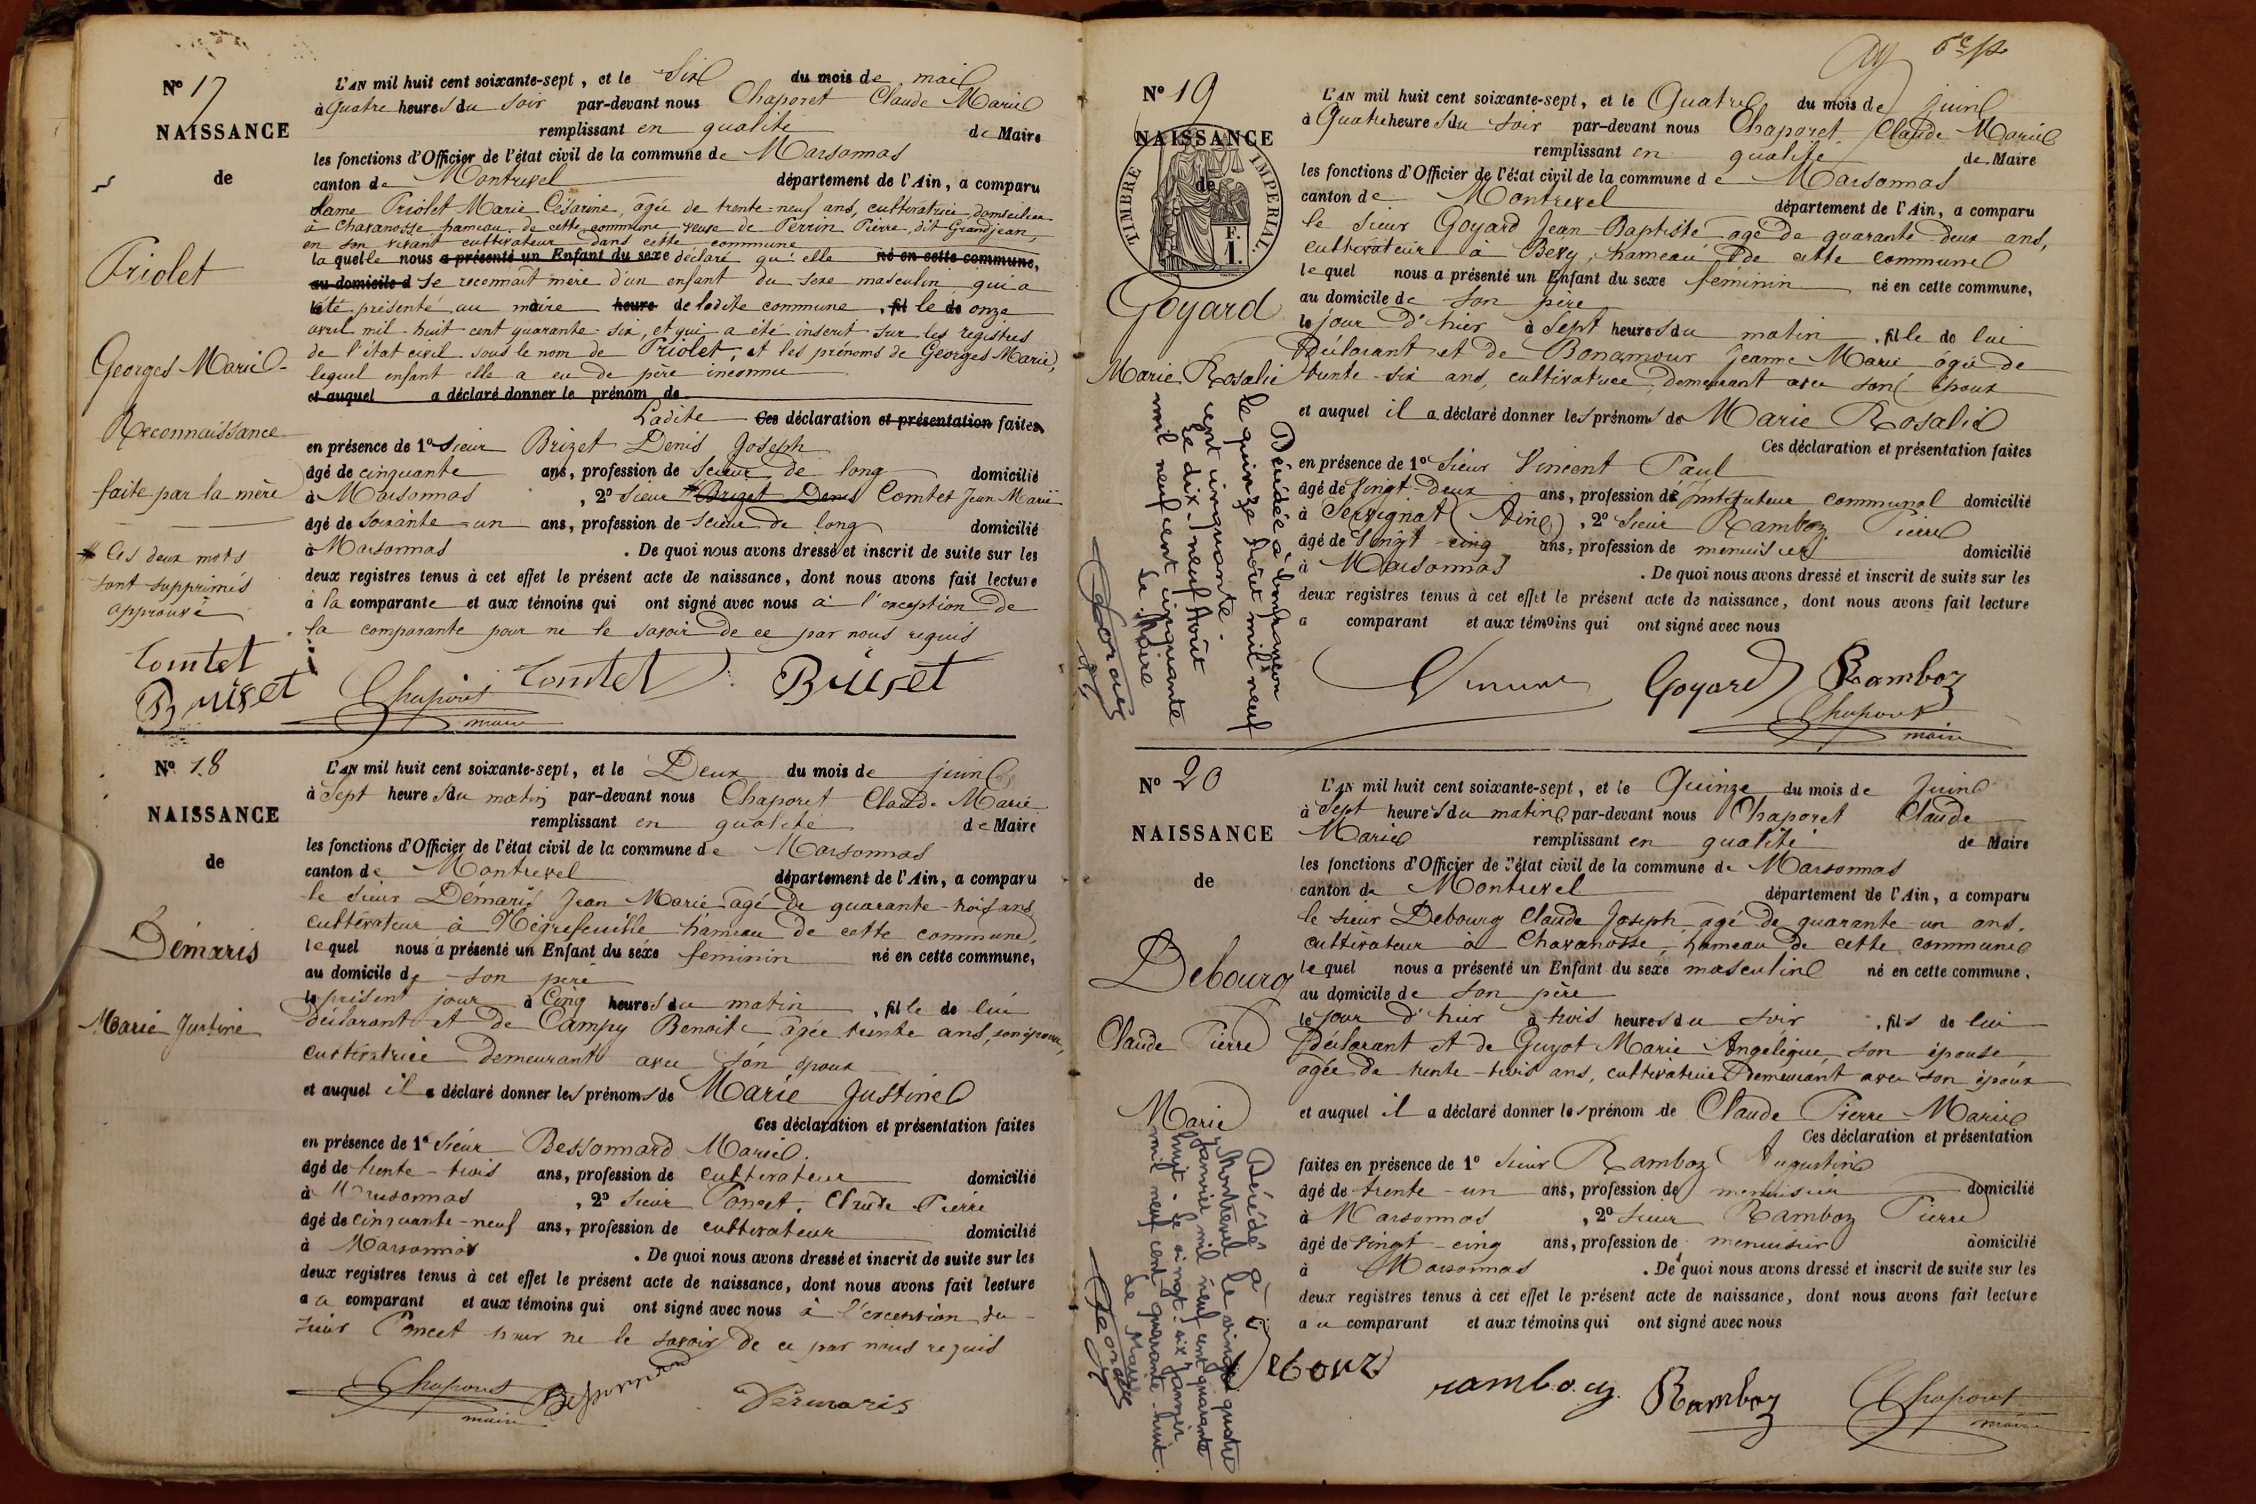 N° 17
NAISSANCE
de
Priolet
Georges Marie
Reconnaissance
faite par la mère
# Ces deux mots
sont supprimés
approuvé
Comtet
Brizet
L'AN mil huit cent soixante-sept, et le Six du mois de mai
à Quatre heures du soir par-devant nous Chaporet Claude Marie
remplissant en qualité de Maire
les fonctions d'Officier de l'état civil de la commune de Marsonnas
canton de Montrevel département de l'Ain, a comparu
dame Priolet Marie Césarine, agée de trente-neuf ans, cultivatrice, domiciliée
à Chavanosse hameau de cette commune, veuve de Perrin Pierre, dit Grandjean,
en son vivant cultivateur dans cette commune
laquelle nous a présenté un Enfant du sexe déclaré qu'elle né en cette commune,
au domicile d se reconnait mère d'un enfant du sexe masculin qui a
été présenté au maire heure de ladite commune, fil le de onze
avril mil huit cent quarante six, et qui a été inscrit sur les registres
de l'état civil sous le nom de Priolet, et les prénoms de Georges Marie,
lequel enfant elle a eu de père inconnu
et auquel a déclaré donner le prénom de
Ladite Ces déclaration et présentation faites
en présence de 1° Sieur Brizet Denis Joseph
âgé de cinquante ans, profession de scieur de long domicilié
à Marsonnas, 2° sieur # Brizet Denis Comtet Jean Marie
âgé de soixante un ans, profession de scieur de long domicilié
à Marsonnas. De quoi nous avons dressé et inscrit de suite sur les
deux registres tenus à cet effet le présent acte de naissance, dont nous avons fait lecture
à la comparante et aux témoins qui ont signé avec nous à l'exception de
la comparante pour ne le savoir de ce par nous requis
Chaporet Comtet Brizet
maire
N° 18
NAISSANCE
de
Démaris
Marie Justine
L'AN mil huit cent soixante-sept, et le Deux du mois de juin
à Sept heures du matin par-devant nous Chaporet Claude Marie
remplissant en qualité de Maire
les fonctions d'Officier de l'état civil de la commune de Marsonnas
canton de Montrevel département de l'Ain, a comparu
le sieur Démaris Jean Marie agé de quarante-trois ans
cultivateur à Négrefeuille hameau de cette commune,
lequel nous a présenté un Enfant du sexe feminin né en cette commune,
au domicile de son père
le présent jour à Cinq heures du matin, fille de lui
déclarant et de Campy Benoite agée trente ans, son épouse,
cultivatrice demeurant avec son époux
et auquel il a déclaré donner les prénoms de Marie Justine
Ces déclaration et présentation faites
en présence de 1° Sieur Bessonnard Marie
âgé de trente-trois ans, profession de cultivateur domicilié
à Marsonnas, 2° sieur Poncet Claude Pierre
âgé de cinquante-neuf ans, profession de cultivateur domicilié
à Marsonnas. De quoi nous avons dressé et inscrit de suite sur les
deux registres tenus à cet effet le présent acte de naissance, dont nous avons fait lecture
au comparant et aux témoins qui ont signé avec nous à l'exception du
sieur Poncet pour ne le savoir de ce par nous requis
Chaporet Bessonnard Démaris
maire
N° 19
NAISSANCE
de
TIMBRE IMPERIAL
F.
1.
Goyard
Marie Rosalie
Décédée à
le quinze Août mil neuf
cent cinquante.
Le dix-neuf Août
mil neuf cent cinquante
Le Maire
L'AN mil huit cent soixante-sept, et le Quatre du mois de juin
à Quatre heures du soir par-devant nous Chaporet Claude Marie
remplissant en qualité de Maire
les fonctions d'Officier de l'état civil de la commune de Marsonnas
canton de Montrevel département de l'Ain, a comparu
le sieur Goyard Jean Baptiste agé de quarante deux ans,
cultivateur à Bevy, hameau de cette commune
lequel nous a présenté un Enfant du sexe féminin né en cette commune,
au domicile de son père
le jour d'hier à Sept heures du matin, fille de lui
Déclarant et de Bonamour Jeanne Marie agée de
trente-six ans, cultivatrice demeurant avec son époux
et auquel il a déclaré donner les prénoms de Marie Rosalie
Ces déclaration et présentation faites
en présence de 1° Sieur Vincent Paul
âgé de Vingt-Deux ans, profession d'Instituteur communal domicilié
à Servignat (Ain), 2° Sieur Ramboz Pierre
âgé de Vingt-cinq ans, profession de menuisier domicilié
à Marsonnas. De quoi nous avons dressé et inscrit de suite sur les
deux registres tenus à cet effet le présent acte de naissance, dont nous avons fait lecture
a comparant et aux témoins qui ont signé avec nous
Vincent Goyard Ramboz
Chaporet
maire
N° 20
NAISSANCE
de
Debourg
Claude Pierre
Marie
Décédé à
Montrevel le vingt quatre
janvier mil neuf cent quarante
huit. Le vingt-six janvier
mil neuf cent quarante-huit.
Le Maire
L'AN mil huit cent soixante-sept, et le Quinze du mois de Juin
à Sept heures du matin par-devant nous Chaporet Claude
Marie remplissant en qualité de Maire
les fonctions d'Officier de l'état civil de la commune de Marsonnas
canton de Montrevel département de l'Ain, a comparu
le sieur Debourg Claude Joseph agé de quarante-un ans,
cultivateur à Chavanosse, hameau de cette commune
lequel nous a présenté un Enfant du sexe masculin né en cette commune,
au domicile de son père
le jour d'hier à trois heures du soir, fils de lui
déclarant et de Guyot Marie Angélique, son épouse,
agée de trente-trois ans, cultivatrice Demeurant avec son époux
et auquel il a déclaré donner les prénom de Claude Pierre Marie
Ces déclaration et présentation
faites en présence de 1° Sieur Ramboz Augustin
âgé de trente-un ans, profession de menuisier domicilié
à Marsonnas, 2° sieur Ramboz Pierre
âgé de vingt-cinq ans, profession de menuisier domicilié
à Marsonnas. De quoi nous avons dressé et inscrit de suite sur les
deux registres tenus à cet effet le présent acte de naissance, dont nous avons fait lecture
au comparant et aux témoins qui ont signé avec nous
Debourg rambo.cy. Ramboz Chaporet
maire